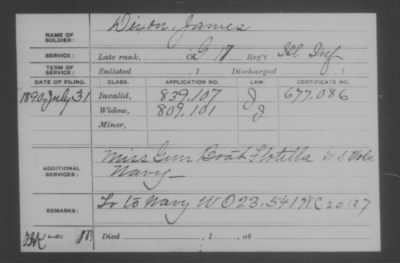 NAME OF SOLDIER: Dixon, James
SERVICE: Late rank, Co G 17 Reg't Ill Inf
TERM OF SERVICE: Enlisted , 1 Discharged , 1
DATE OF FILING. CLASS. APPLICATION NO. LAW. CERTIFICATE NO.
1890, July 31 Invalid, 839.107 J 677.086
Widow, 869.101 J
Minor,
ADDITIONAL SERVICES: Miss Gun Boat Flotilla U S Vols
Navy
REMARKS: to Navy W O 23.541 W C 20127
Died , 1 , at